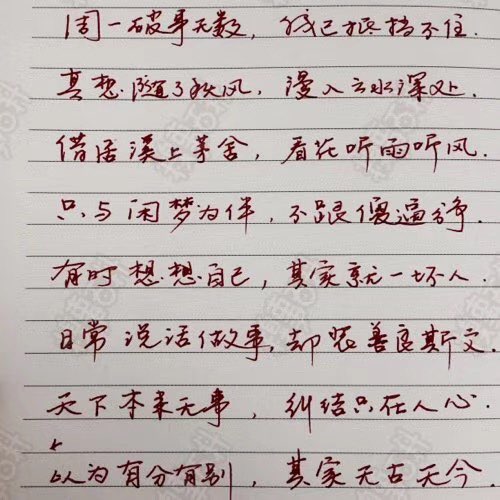 周一破事无数，残己抵挡不住.
真想随了秋风，漫入云水深处.
借居溪上茅舍，看花听雨听风.
只与闲梦为伴，不跟傻逼争.
有时想想自己，其实就一坏人.
日常说话做事，却装善良斯文.
天下本来无事，纠结只在人心.
以为有分有别，其实无古无今.